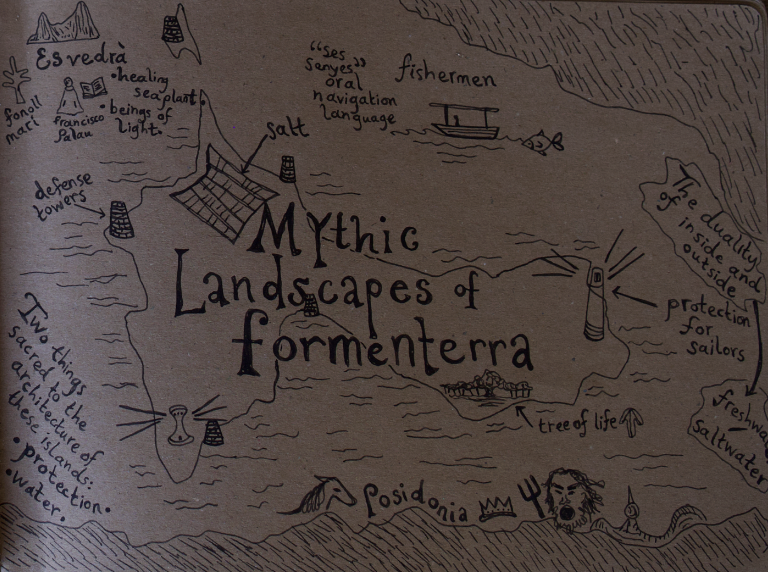 Es vedrà
fonoll
marí
francisco
Palau
• healing
sea plant.
• beings of
light.
"ses
senyes"
oral
navigation
language
fishermen
salt
defense
towers
Mythic
Landscapes of
formenterra
The duality
of
inside and
outside
protection
for
sailors
freshwa
saltwater
Two things
sacred to the
architecture of
these islands:
• protection.
• water.
tree of life
Posidonia